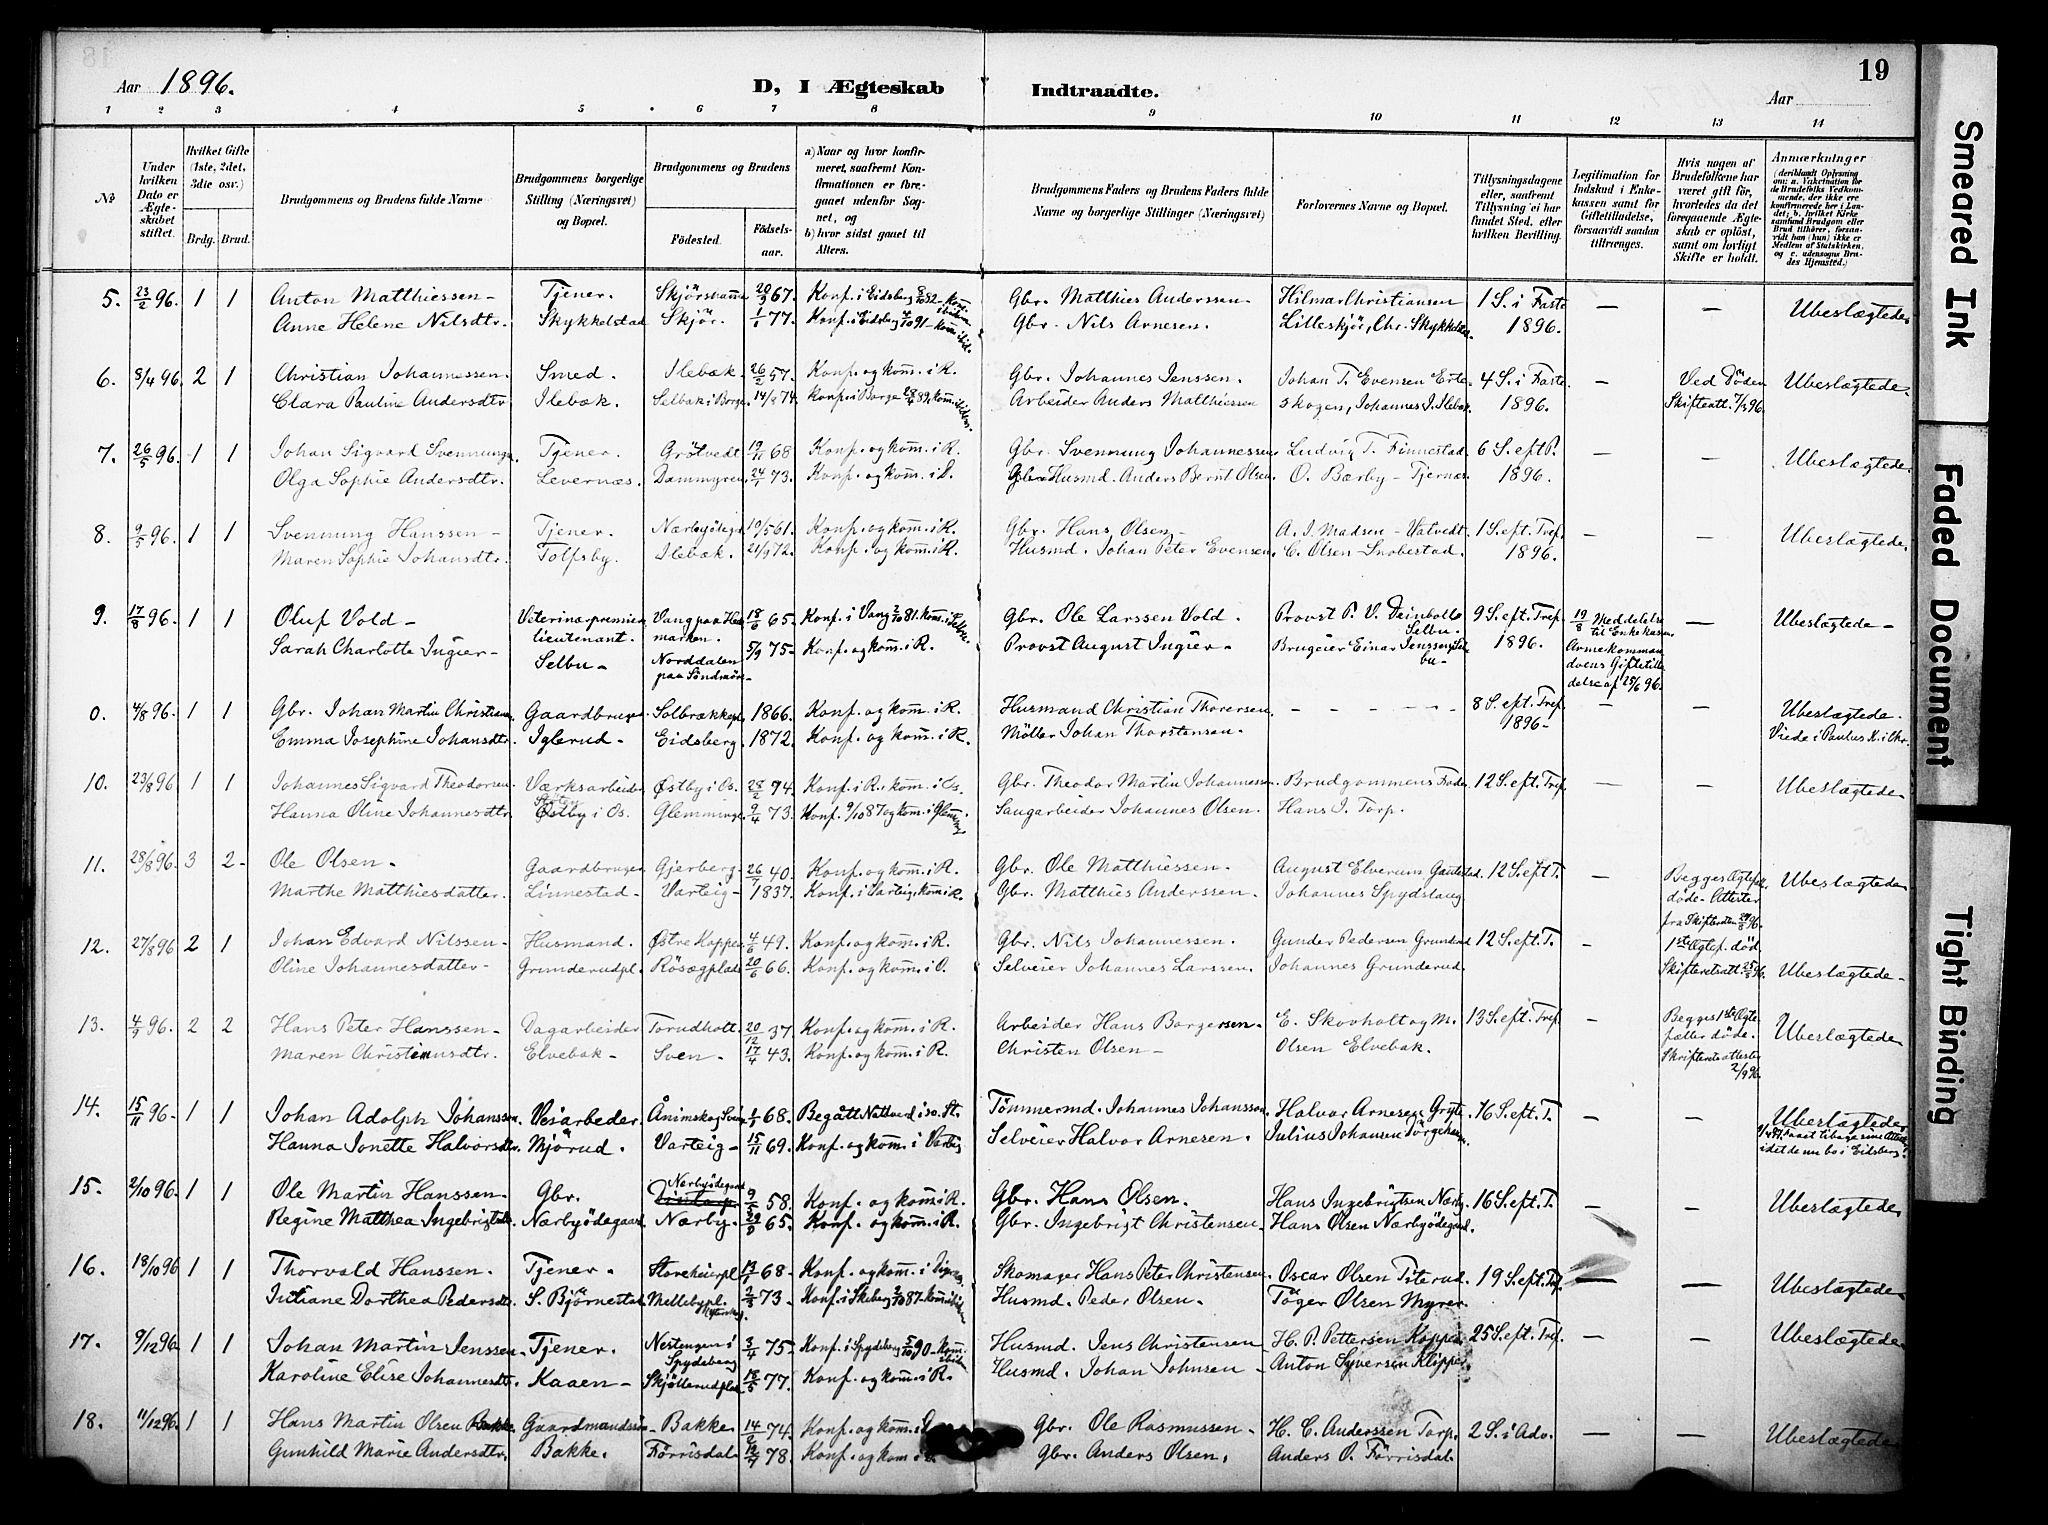 19
Aar 1896.
D, I Ægteskab Indtraadte.
Aar
1 2 3 4 5 6 7 8 9 10 11 12 13 14
No
Under hvilken Dato er Ægteskabet stiftet.
Hvilket Gifte (1ste, 2det, 3die osv.)
Brdg. Brud.
Brudgommens og Brudens fulde Navne
Brudgommens borgerlige Stilling (Næringsvei) og Bopæl.
Brudgommens og Brudens
Fødested.
Fødselsaar.
a) Naar og hvor konfirmeret, saafremt Konfirmationen er foregaaet udenfor Sognet, og
b) hvor sidst gaaet til Alters.
Brudgommens Faders og Brudens Faders fulde Navne og borgerlige Stillinger (Næringsvei)
Forlovernes Navne og Bopæl.
Tillysningsdagene eller, saafremt Tillysning ei har fundet Sted, efter hvilken Bevilling.
Legitimation for Indskud i Enkekassen samt for Giftetilladelse, forsaavidt saadan tiltrænges.
Hvis nogen af Brudefolkene har været gift før, hvorledes da det foregaaende Ægteskab er opløst, samt om lovligt Skifte er holdt.
Anmærkninger (deriblandt Oplysning om: a. Vakcination for de Brudefolks Vedkommende, der ikke ere konfirmerede her i Landet; b. hvilket Kirkesamfund Brudgom eller Brud tilhører, forsaavidt han (hun) ikke er Medlem af Statskirken, og c. udensogns Brudes Hjemsted.)
5. 23/2 96. 1 1 Anton Matthiessen - Tjener. 20/9 67. Konf. i Eidsberg Gbr. Matthies Anderssen - Hilmar Christiansen 1 S. i Faste — — Ubeslægtede.
Anne Helene Nilsdtr. Skykkelstad Skjør. 1/1 77. Konf. i Eidsberg Gbr. Nils Arnesen. Lilleskjør, Chr. 1896.
6. 8/4 96. 2 1 Christian Johannessen. Smed. Ilebæk. 26/2 57. Konf. og kom. i R. Gbr. Johannes Jenssen. Johan T. Evensen Erte 4 S. i Faste — Ved Døden Ubeslægtede.
Clara Pauline Andersdtr. Ilebæk. Selbak i Borge 14/8 74. Konf. i Borge Arbeider Anders Matthiessen skogen, Johannes J. Ilebæk 1896. Skifteatt. 7/3 96.
7. 26/5 96. 1 1 Johan Sigvard Tjener. Grötvedt 19/11 68 Konf. og kom. i R. Gbr. Svenning Johannessen Ludvig T. Finnestad. 6 S. eft P. — — Ubeslægtede.
Olga Sophie Andersdtr. Levernæs. Dammyren 24/1 73. Konf. og kom. i Husmd. Anders Bernt Olsen. O. Bærby - Tjernæs 1896.
8. 9/5 96. 1 1 Svenning Hanssen - Tjener. 10/5 61. Konf. og kom. i R. Gbr. Hans Olsen - A. J. Madsen - Vatvedt. 1 S. eft. Tref. — — Ubeslægtede.
Maren Sophie Johansdtr. Tolfsby. Ilebæk. 21/9 72. Konf. og kom. i R. Husmd. Johan Peter Evensen. C. Olsen - Snobestad. 1896.
9. 17/8 96. 1 1 Oluf Vold - Veterinærpremier Vang paa Hed 18/6 65. Konf. i Vang 2/10 81. kom. i Selbu. Gbr. Ole Larssen Vold. Provst P. V. Deinbolls 9 S. eft. Tref. 19/8 Meddelelse — Ubeslægtede -
lieutenant. marken. Selbu. 1896. til Enkekassen
Sarah Charlotte Ingier - Selbu - Norddalen paa Søndmøre 5/9 75 - Konf. og kom. i R. Provst August Ingier - Brugeier Einar Jenssen Selbu - Armekommandoens Giftetilladelse af 25/6 96.
0. 4/8 96. 1 1 Gbr. Johan Martin Christians Gaardbruger Solbrækkepl. 1866. Konf. og kom. i R. Husmand Christian Thoresen. - - - - - 8 S. eft. Tref. — — Ubeslægtede.
Emma Josephine Johansdtr. Iglerud - Eidsberg. 1872. Konf. og kom. i R. Møller Johan Thorstensen. 1896 - Viede i Paulus K. i Chr.
10. 23/8 96 1 1 Johannes Sigvard Theodorsen. Værksarbeider Østby i Os. 28/2 74. Konf. i R. kom. i Os. Gbr. Theodor Martin Johannessen. Brudgommens Fader 12 S. eft. Tref. — — Ubeslægtede.
Hanna Oline Johannesdtr. Østby i Os. Glemminge 9/4 73. Konf. 9/10 87 og kom. i Glemminge Saugarbeider Johannes Olsen. Hans J. Torp.
11. 28/8 96. 3 2 - Ole Olsen - Gaardbruger Gjerberg 26/7 40. Konf. og kom. i R. Gbr. Ole Matthiessen. August Elverum 12 S. eft T. Begges Ægtef. Ubeslægtede
Marthe Matthiesdatter. Linnestad - Varteig - 1837. Konf. i Varteig, kom i R. Gbr. Matthies Anderssen. Johannes Spydslaug døde - Attester fra Skifteretten 24/8 96.
12. 27/8 96 2 1 Johan Edvard Nilssen - Husmand. Østre Kopper 4/6 49. Konf. og kom. i R. Gbr. Nils Johannessen. Gunder Pedersen Grunerud 12 S. eft. T. — 1ste Ægtef. død.
Oline Johannesdatter - Grunderudpl. Rösægplads 20/6 66. Konf. og kom. i Selveier Johannes Larssen. Johannes Grunderud. Skifteretsatt. 25/8 96. Ubeslægtede -
13. 4/9 96. 2 2 Hans Peter Hanssen - Dagarbeider Torudholt. 20/12 37. Konf. og kom. i R. Arbeider Hans Borgersen - E. Skovholt og M. 13 S. eft. Tref. — Begges 1ste Ægte Ubeslægtede
Maren Christensdtr. Elvebak - Sven - 17/4 43. Konf. og kom. i R. Christen Olsen - Olsen Elvebak. fæller døde. Skifteretsattester 2/9 96.
14. 15/11 96 - 1 1 Johan Adolph Johanssen. Veiarbeder. Ånimskog Sverige 1/1 68. Begått Nattvard i Tømmermd. Johannes Johansson. Halvor Arnesen Gryte. 16 S. eft. T. — — Ubeslægtede.
Hanna Jonette Halvorsdtr. Mjørud. Varteig - 15/11 69. Konf. og kom. i Varteig Selveier Halvor Arnesen. Julius Johansen idet de nu bo i Eidsberg.
15. 2/10 96. 1 1 Ole Martin Hanssen - Gbr. Nærbyödegaard 9/2 58. Konf. og kom i R. Gbr. Hans Olsen. Hans Ingebrigtsen Nærby. 16 S. eft. T. — — Ubeslægtede
Regine Matthea Nærbyödegaard. Nærby. 65. Konf. og kom. i R. Gbr. Ingebrigt Christensen. Hans Olsen Nærbyödegaard.
16. 18/10 96 1 1 Thorvald Hanssen. Tjener. 13/1 68 - Konf. og kom. i Skomager Hans Peter Christensen. Oscar Olsen Titerud. 19 S. eft. Tref. — — Ubeslægtede
Juliane Dorthea Pedersdtr. S. Bjørnestad Mellebypl. 2/3 73 - Konf. i Skiberg 2/10 87 - Husmd. Peder Olsen. Töger Olsen Myrer.
17. 9/12 96 1 1 Johan Martin Jenssen. Tjener. Nestengen i Spydeberg 3/4 75 - Konf. i Spydeberg 5/10 90 - Husmd. Jens Christensen H. P. Pettersen Kopper 25 S. eft. Tref. — — Ubeslægtede
Karoline Elise Johannesdtr. Kaaen - Skjöllerudplads 18/5 77. Konf. og kom. i R. Husmd. Johan Johnsen - Anton Syversen Klipper
18. 11/12 96. 1 1 Hans Martin Olsen Bakke. Gaardmandssøn - Bakke. 14/2 74. Konf. og kom. i Gbr. Ole Rasmussen - H. C. Anderssen Torp. 2 S. i Adv. — — Ubeslægtede
Gunhild Marie Andersdtr. Bakke. Förrisdal 78. Konf. og kom i Gbr. Anders Olsen. Anders O. Förrisdal.
Smeared Ink
Faded Document
Tight Binding